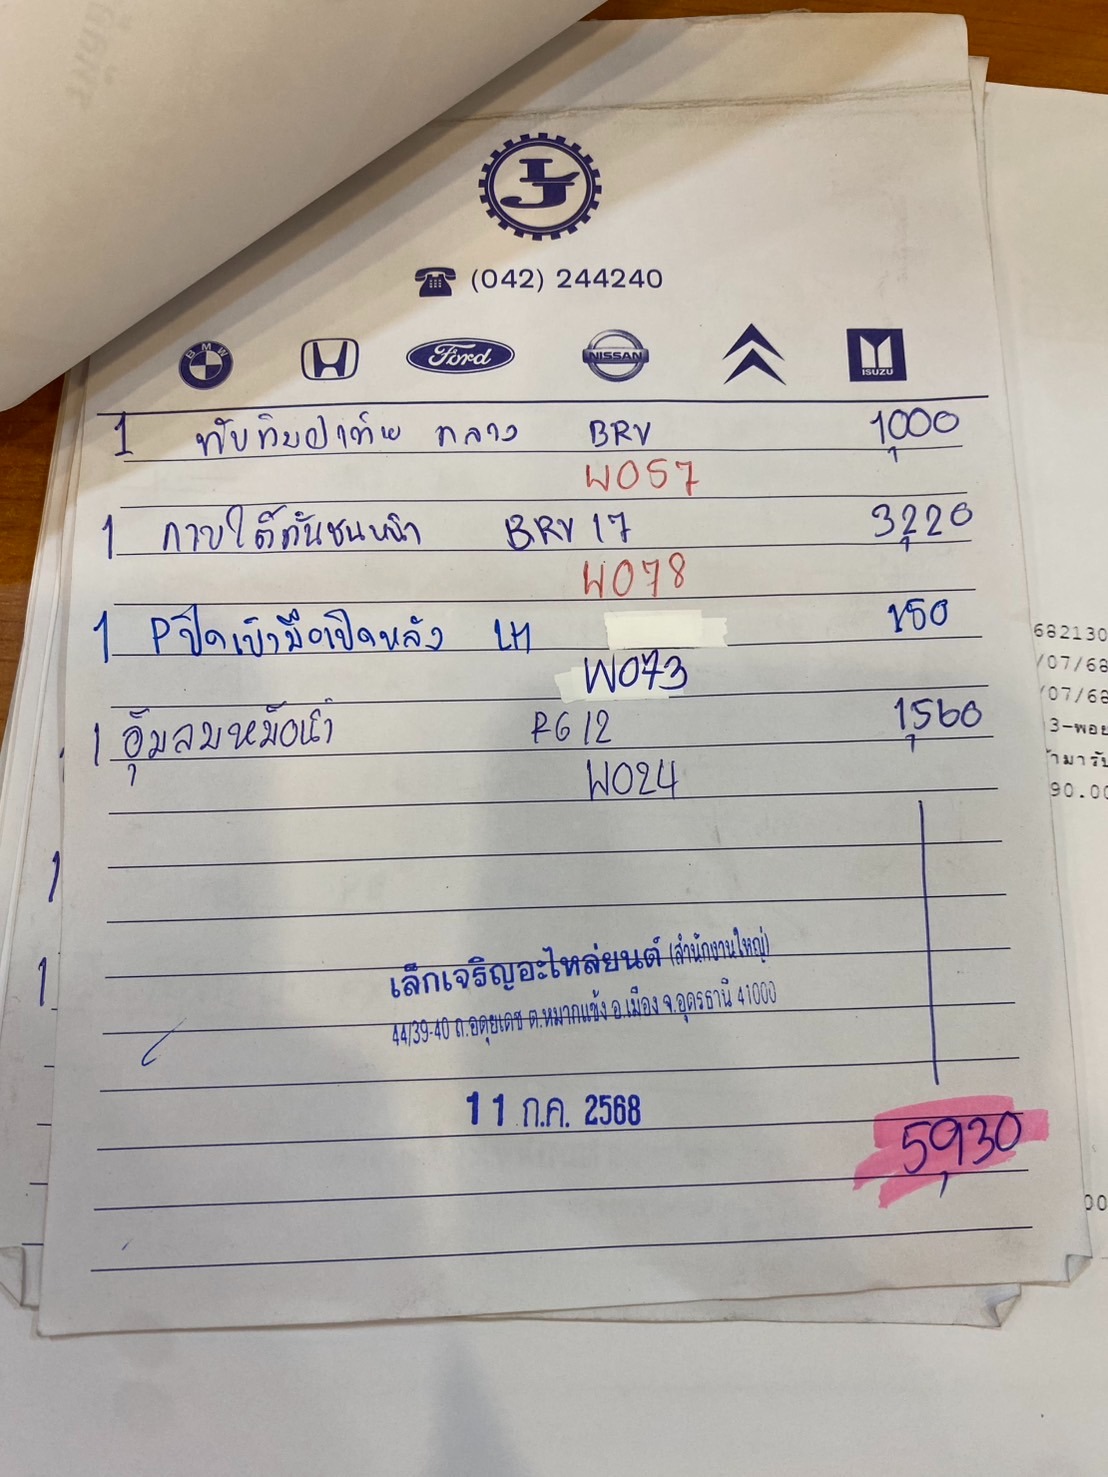 LJ
(042) 244240
BMW Ford NISSAN ISUZU
1 ทับทิมฝาท้าย กลาง BRV 1,000
W057
1 กาบใต้กันชนหน้า BRV 17 3,220
W078
1 Pปิดเบ้ามือเปิดหลัง LH 150
W073
1 อุ้มลมหม้อน้ำ RG 12 1,560
W024
เล็กเจริญอะไหล่ยนต์ (สำนักงานใหญ่)
44/39-40 ถ.อดุยเดช ต.หมากแข้ง อ.เมือง จ.อุดรธานี 41000
11 ก.ค. 2568
5,930
682130
/07/68
/07/68
3-พอย
90.00
1
1